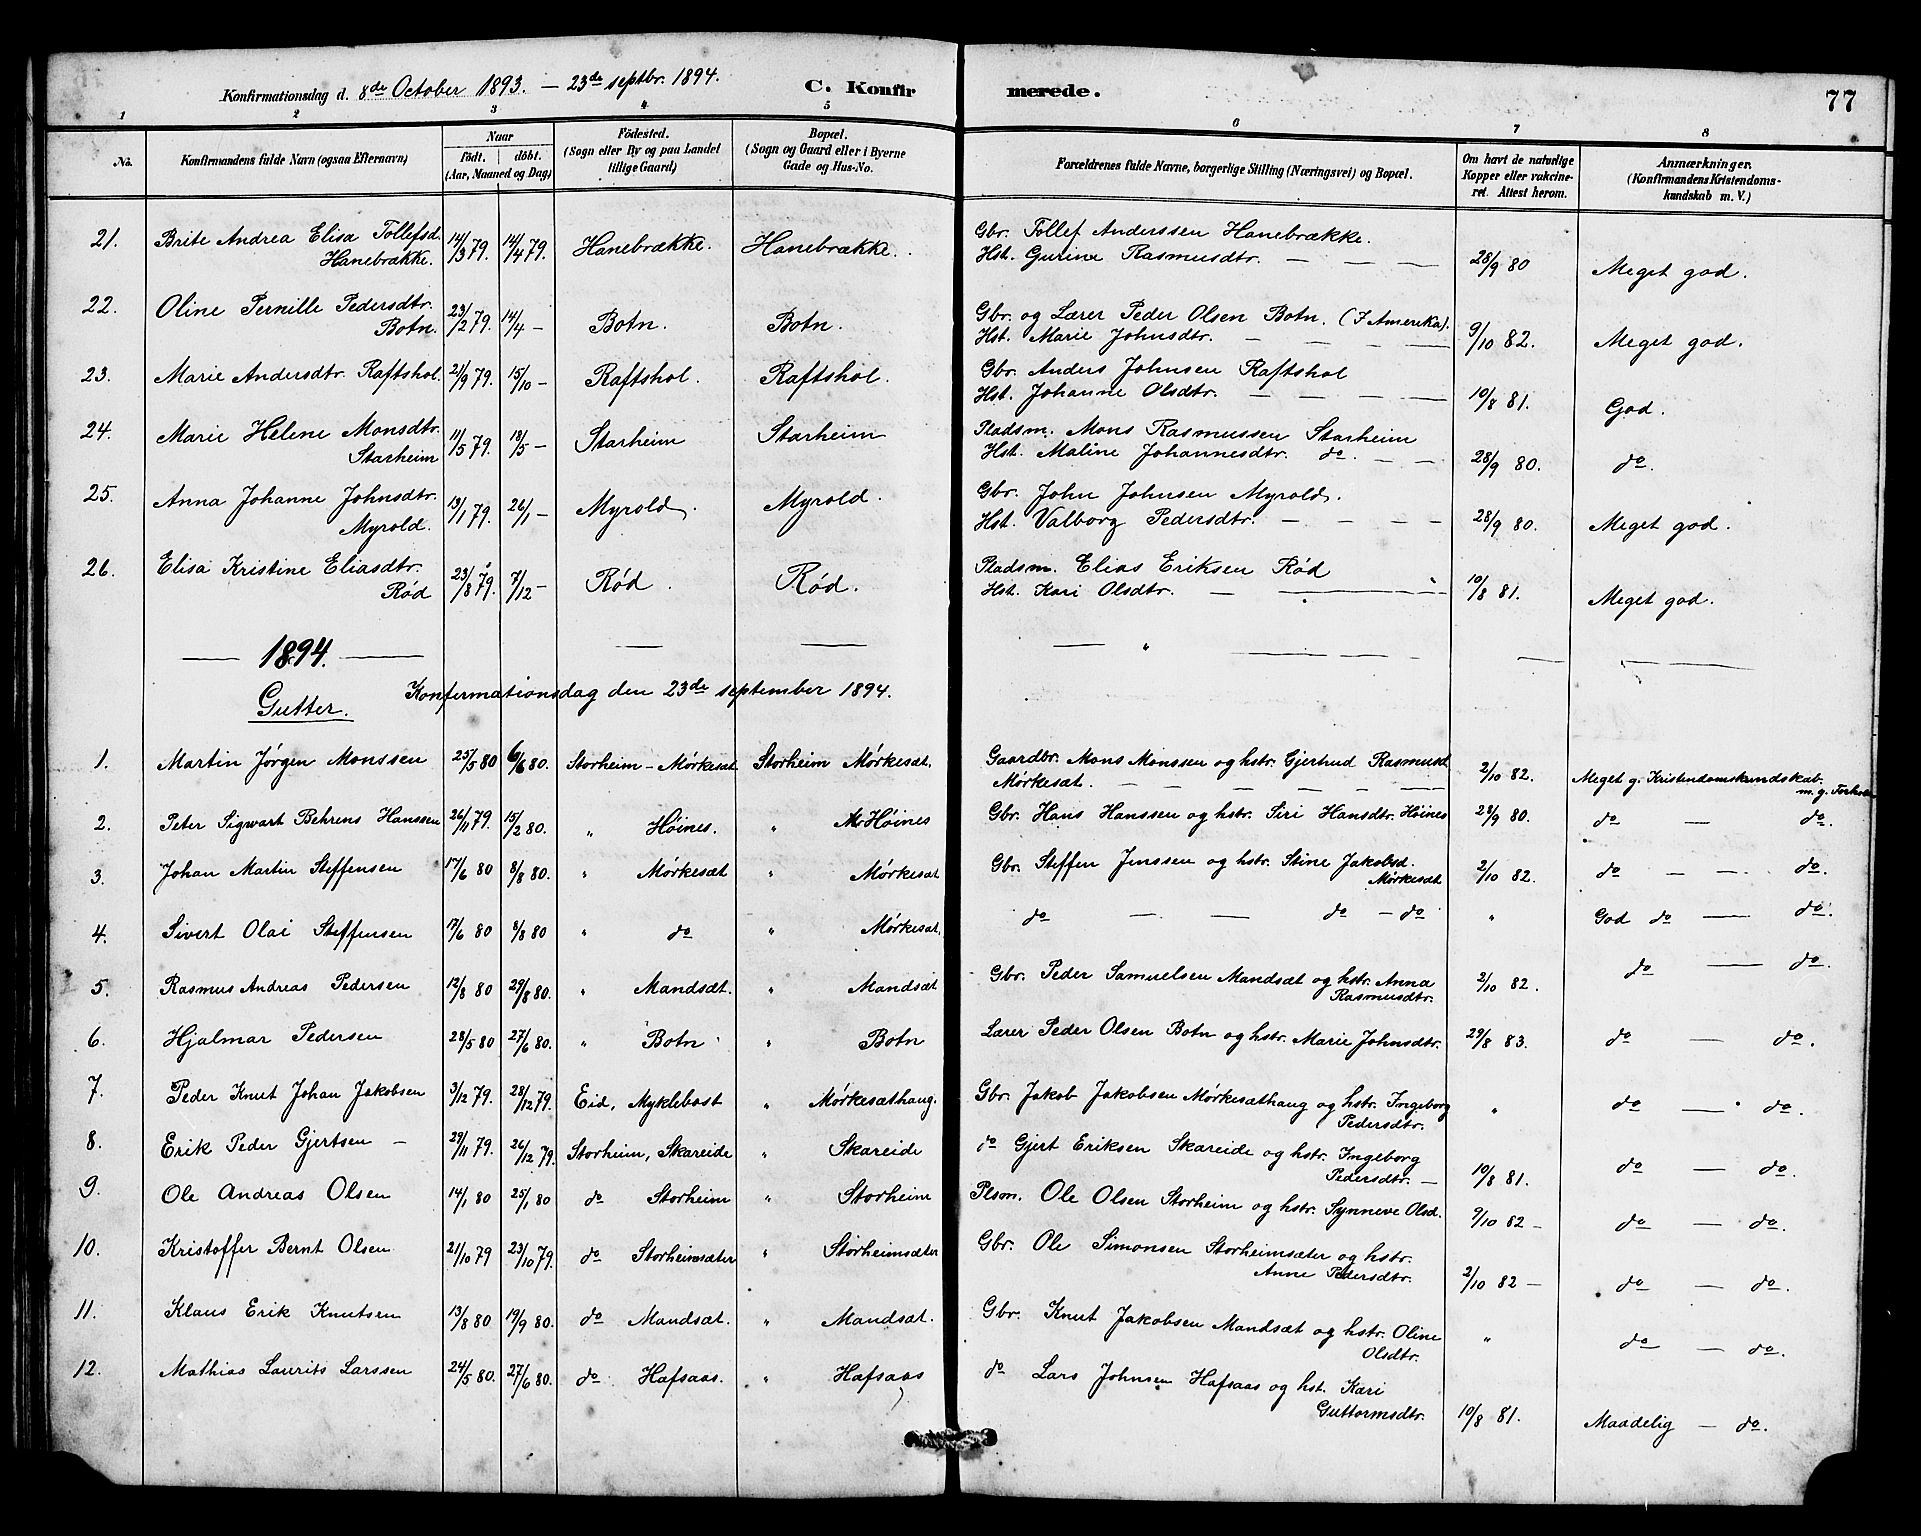 Konfirmationsdag d. 8de October 1893. — 23de septbr. 1894. C. Konfirmerede. 77
1 2 3 4 5 6 7 8
No. Konfirmandens fulde Navn (ogsaa Efternavn) Naar födt. döbt. (Aar, Maaned og Dag) Födested. (Sogn eller By og paa Landet tillige Gaard) Bopæl. (Sogn og Gaard eller i Byerne Gade og Hus-No. Forældrenes fulde Navne, borgerlige Stilling (Næringsvei) og Bopæl. Om havt de naturlige Kopper eller vakcineret. Attest herom. Anmærkninger. (Konfirmandens Kristendomskundskab m. V.)
21. Brite Andrea Elisa Tollefsd. Hanebrække. 14/3 79. 14/4 79. Hanebrække. Hanebrække. Gbr. Tollef Anderssen Hanebrække.
Hst. Gurine Rasmusdtr. — — — 28/9 80 Meget god.
22. Oline Pernille Pedersdtr. Botn. 23/2 79. 14/4 — Botn. Botn. Gbr. og Lærer Peder Olsen Botn. (I Amerika).
Hst. Marie Johnsdtr. — — — — 9/10 82. Meget god.
23. Marie Andersdtr. Raftshol. 21/9 79. 15/10 — Raftshol. Raftshol. Gbr. Anders Johnsen Raftshol
Hst. Johanne Olsdtr. — — — — 10/8 81. God.
24. Marie Helene Monsdtr. Starheim 11/5 79. 18/5 — Starheim Starheim Pladsm. Mons Rasmussen Starheim
Hst. Maline Johannesdtr. do. — — 28/9 80. do.
25. Anna Johanne Johnsdtr. Myrold. 13/1 79. 26/1 — Myrold. Myrold. Gbr. John Johnsen Myrold.
Hst. Valborg Pedersdtr. — — — — 28/9 80. Meget god.
26. Elisa Kristine Eliasdtr. Rød 23/8 79. 7/12 — Rød. Rød. Pladsm. Elias Eriksen Rød
Hst. Kari Olsdtr. — — — — 10/8 81. Meget god.
— 1894. —
Gutter. Konfirmationsdag den 23de september 1894.
1. Martin Jørgen Monssen 25/5 80 6/6 80. Storheim — Mørkesæt Storheim Mørkesæt. Gaardbr. Mons Monssen og hstr. Gjertrud Rasmusd
Mørkesæt. — — — — — — 2/10 82. Meget g. Kristendomskundskab. m. g. Forhold
2. Peter Sigwart Behrens Hanssen 26/11 79. 15/2 80. " Höines. " Höines Gbr. Hans Hanssen og hstr. Siri Hansdtr. Höines 28/9 80. do — do.
3. Johan Martin Steffensen 17/6 80 8/8 80. " Mørkesæt " Mørkesæt Gbr. Steffen Jenssen og hstr. Stine Jakobsd.
Mørkesæt 2/10 82. do — — do.
4. Sivert Olai Steffensen 17/6 80 8/8 80 " do " Mørkesæt. do — — do — do " God do — do.
5. Rasmus Andreas Pedersen 12/8 80 29/8 80. " Mandsæt. " Mandsæt Gbr. Peder Samuelsen Mandsæt og hstr. Anna
Rasmusdtr. 2/10 82. do — do.
6. Hjalmar Pedersen 28/5 80 27/6 80. " Botn " Botn Lærer Peder Olsen Botn og hstr. Marie Johnsdtr. 29/8 83. do — do.
7. Peder Knut Johan Jakobsen 3/12 79. 28/12 79. Eid, Myklebost " Mørkesæthaug. Gbr. Jakob Jakobsen Mørkesæthaug og hstr. Ingeborg
Pedersdtr. " do — do.
8. Erik Peder Gjertsen — 29/11 79. 26/12 79. Storheim, Skareide " Skareide do Gjert Eriksen Skareide og hstr. Ingeborg
Pedersdtr. — 10/8 81. do — do.
9. Ole Andreas Olsen 14/1 80 25/1 80 do Storheim " Storheim Plsm. Ole Olsen Storheim og hstr. Synneve Olsd. 9/10 82 — do — do.
10. Kristoffer Bernt Olsen 21/10 79 23/10 79. do Storheimsæter " Storheimsæter Gbr. Ole Simonsen Storheimsæter og hstr.
Anne Pedersdtr. 2/10 82 — do — do.
11. Klaus Erik Knutsen 13/8 80 19/9 80. do Mandsæt. " Mandsæt. Gbr. Knut Jakobsen Mandsæt og hstr. Oline
Olsdtr. " do — do.
12. Mathias Laurits Larssen 24/5 80. 27/6 80. do Hafsaas. " Hafsaas do Lars Johnsen Hafsaas og hst. Kari
Guttormsdtr. 10/8 81. Maadelig — do.